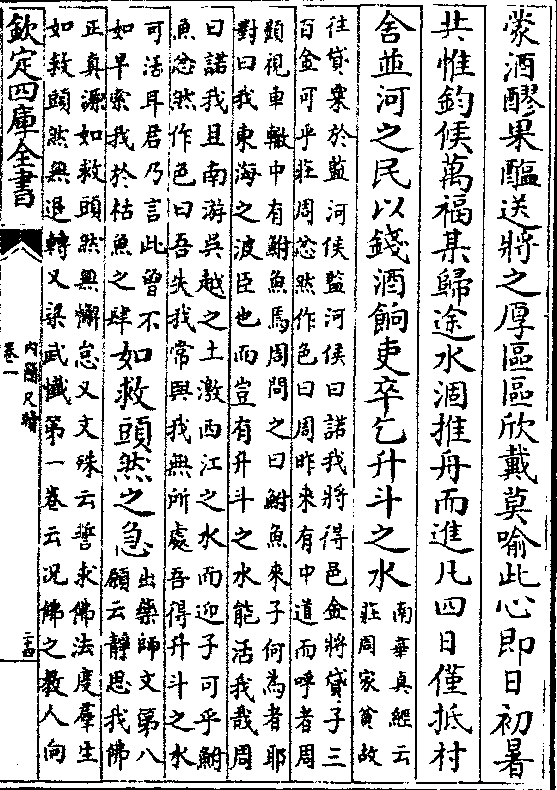 蒙酒醪果醢送將之厚區區欣戴莫喻此心即日初暑
共惟鈞候萬福某歸途水涸推舟而進凡四日僅抵村
舍並河之民以錢酒餉吏卒乞升斗之水
南華真經云
莊周家貧故
往貸粟於監河侯監河侯曰諾我將得邑金將貸子三
百金可乎莊周忿然作色曰周昨來有中道而呼者周
顧視車轍中有鮒魚焉周問之曰鮒魚來子何為者耶
對曰我東海之波臣也而豈有升斗之水能活我哉周
曰諾我且南游吳越之土激西江之水而迎子可乎鮒
魚忿然作色曰吾失我常與我無所處吾得升斗之水
可活耳君乃言此曾不
如早索我於枯魚之肆
如救頭然之急
出藥師文第八
願云靜思我佛
正真源如救頭然無懈怠又文殊云誓求佛法度羣生
如救頭然無退轉又梁武懺第一卷云況佛之教人向
欽定四庫全書
內簡尺牘
卷一
二十四